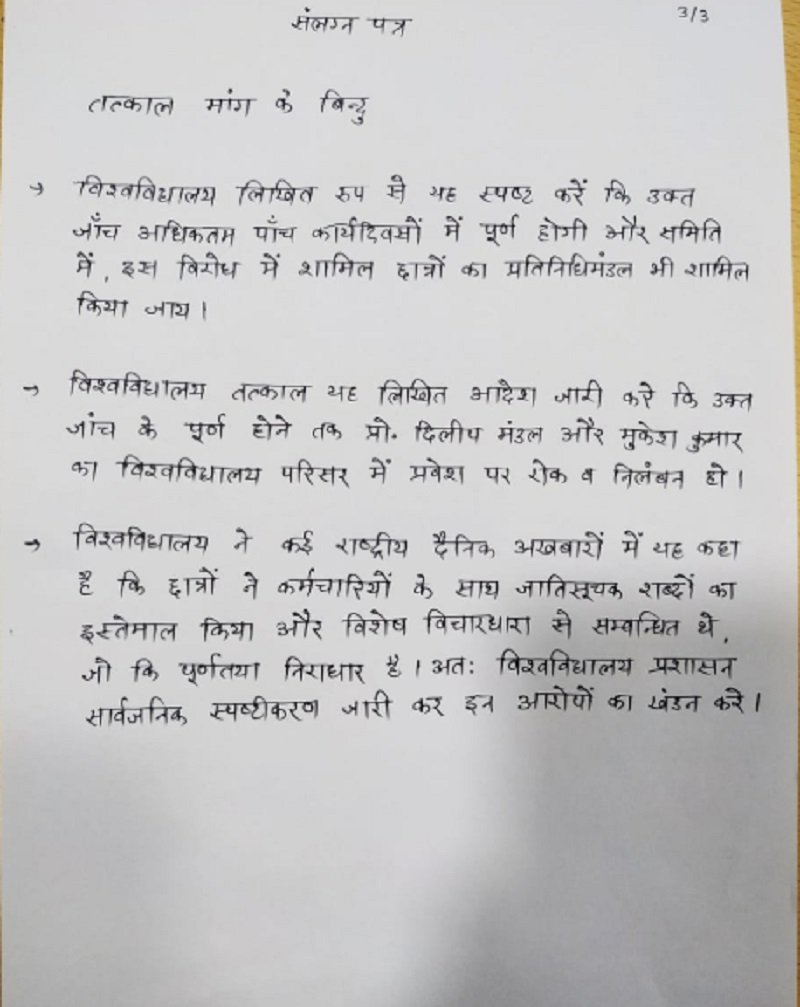 3/3
संलग्न पत्र
तत्काल मांग के बिन्दु
→ विश्वविधालय लिखित रुप से यह स्पष्ट करें कि उक्त
जाँच अधिकतम पाँच कार्यदिवसों में पूर्ण होगी और समिति
में, इस विरोध में शामिल छात्रों का प्रतिनिधिमंडल भी शामिल
किया जाय।
→ विश्वविधालय तत्काल यह लिखित आदेश जारी करे कि उक्त
जांच के पूर्ण होने तक प्रो. दिलीप मंडल और मुकेश कुमार
का विश्वविधालय परिसर में प्रवेश पर रोक व निलंबन हो।
→ विश्वविधालय ने कई राष्ट्रीय दैनिक अखबारों में यह कहा
है कि छात्रों ने कर्मचारियों के साथ जातिसूचक शब्दों का
इस्तेमाल किया और विशेष विचारधारा से सम्बन्धित थे,
जो कि पूर्णतया निराधार है। अतः विश्वविधालय प्रशासन
सार्वजनिक स्पष्टीकरण जारी कर इन आरोपों का खंडन करे।